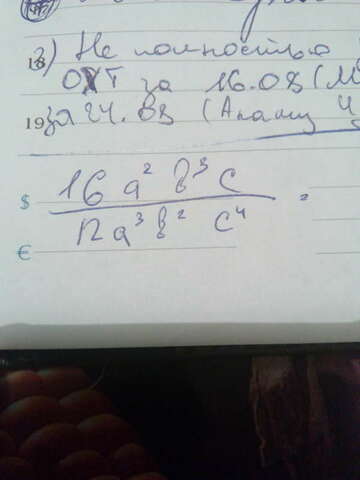 18
3) Не полностью
ОХТ за 16.08 (М
19 за 24.08 (Анализ 4
$ 16 a² b³ c
€ 12 a³ b² c⁴ =